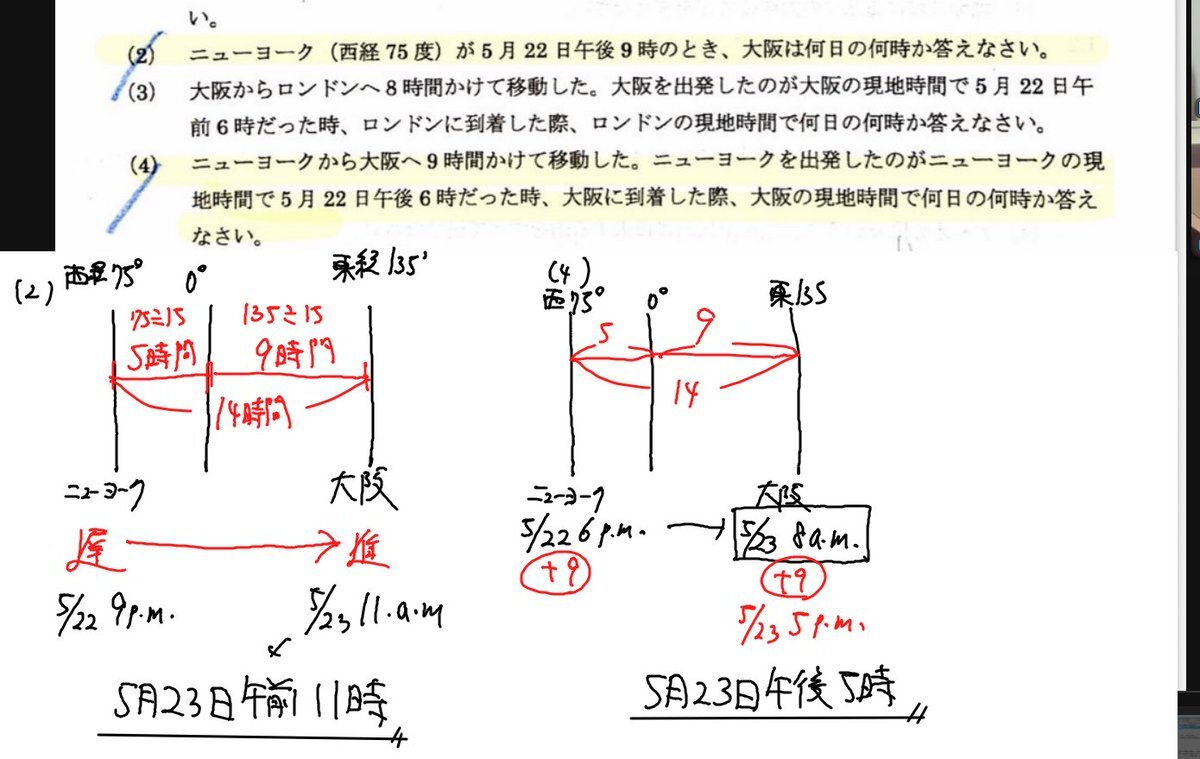 い。
(2) ニューヨーク(西経75度)が5月22日午後9時のとき、大阪は何日の何時か答えなさい。
(3) 大阪からロンドンへ8時間かけて移動した。大阪を出発したのが大阪の現地時間で5月22日午
前6時だった時、ロンドンに到着した際、ロンドンの現地時間で何日の何時か答えなさい。
(4) ニューヨークから大阪へ9時間かけて移動した。ニューヨークを出発したのがニューヨークの現
地時間で5月22日午後6時だった時、大阪に到着した際、大阪の現地時間で何日の何時か答え
なさい。
(2) 西経75° 0° 東経135°
75÷15 135÷15
5時間 9時間
14時間
ニューヨーク 大阪
遅 進
5/22 9p.m. 5/23 11.a.m
5月23日午前11時
(4)
西75° 0° 東135
5 9
14
ニューヨーク 大阪
5/22 6p.m. → 5/23 8a.m.
+9 +9
5/23 5p.m.
5月23日午後5時